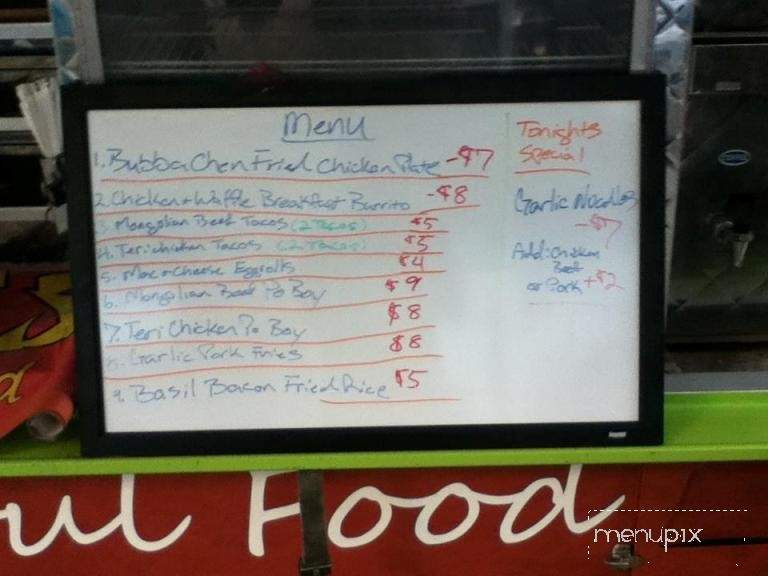 Menu
1. Bubba Chen Fried Chicken Plate -$7
2. Chicken + Waffle Breakfast Burrito -$8
3. Mongolian Beef Tacos (2 Tacos) $5
4. Teri chicken Tacos (2 Tacos) $5
5. Mac n Cheese Eggrolls $4
6. Mongolian Beef Po Boy $9
7. Teri Chicken Po Boy $8
8. Garlic Pork Fries $8
9. Basil Bacon Fried Rice $5
Tonights
Special
Garlic Noodles
-$7
Add: Chicken
Beef
or Pork +$2
ul Food
menupix